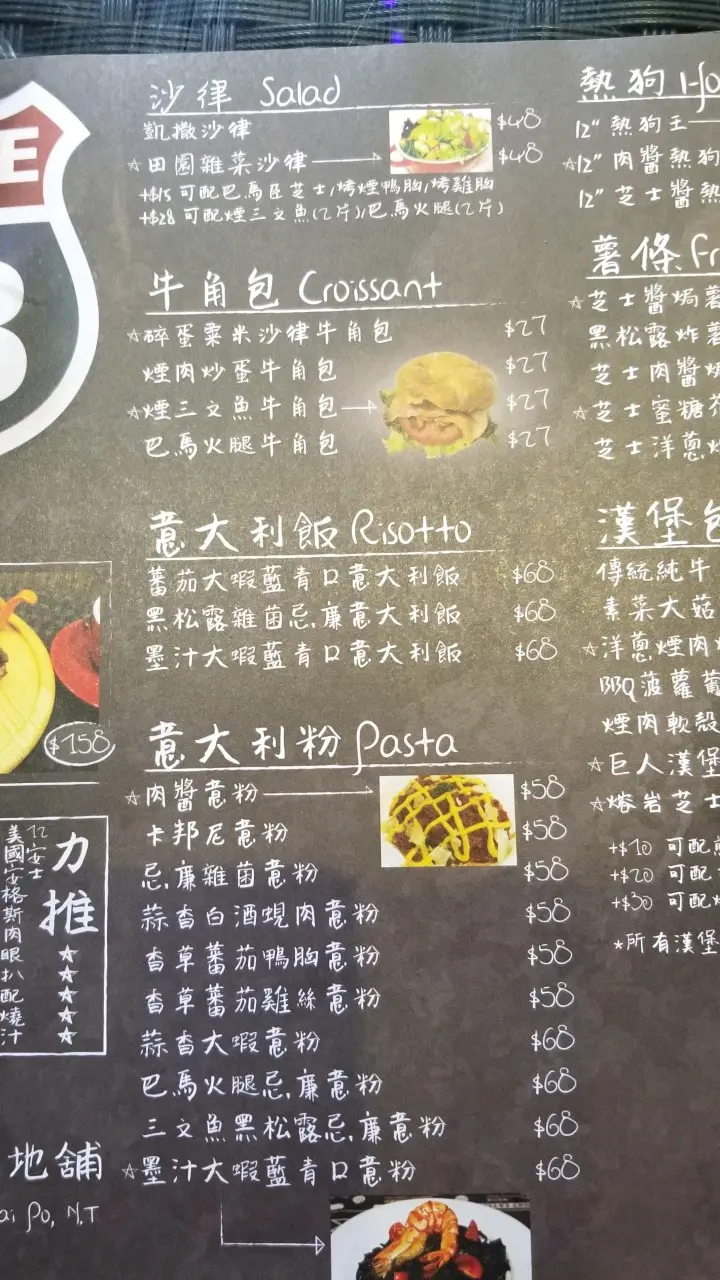 E
B
沙律 Salad
凱撒沙律 $48
☆田園雜菜沙律 $48
+$15 可配巴馬臣芝士/烤煙鴨胸/烤雞胸
+$28 可配煙三文魚(2片)/巴馬火腿(2片)
牛角包 Croissant
☆碎蛋粟米沙律牛角包 $27
煙肉炒蛋牛角包 $27
☆煙三文魚牛角包 $27
巴馬火腿牛角包 $27
意大利飯 Risotto
蕃茄大蝦藍青口意大利飯 $68
黑松露雜菌忌廉意大利飯 $68
墨汁大蝦藍青口意大利飯 $68
意大利粉 Pasta
☆肉醬意粉 $58
卡邦尼意粉 $58
忌廉雜菌意粉 $58
蒜香白酒蜆肉意粉 $58
香草蕃茄鴨胸意粉 $58
香草蕃茄雞絲意粉 $58
蒜香大蝦意粉 $68
巴馬火腿忌廉意粉 $68
三文魚黑松露忌廉意粉 $68
☆墨汁大蝦藍青口意粉 $68
熱狗 Ho
12" 熱狗王
☆12" 肉醬熱狗
12" 芝士醬熱
薯條 Fr
☆芝士醬焗薯
黑松露炸薯
芝士肉醬焗
☆芝士蜜糖芥
芝士洋蔥
漢堡包
傳統純牛
素菜大菇
☆洋蔥煙肉
BBQ菠蘿
煙肉軟殼
☆巨人漢堡
☆熔岩芝士
+$10 可配
+$20 可配
+$30 可配
*所有漢堡
$158
力推
☆☆☆☆☆
12安士
美國安格斯肉眼扒配燒汁
地舖
ai Po, N.T